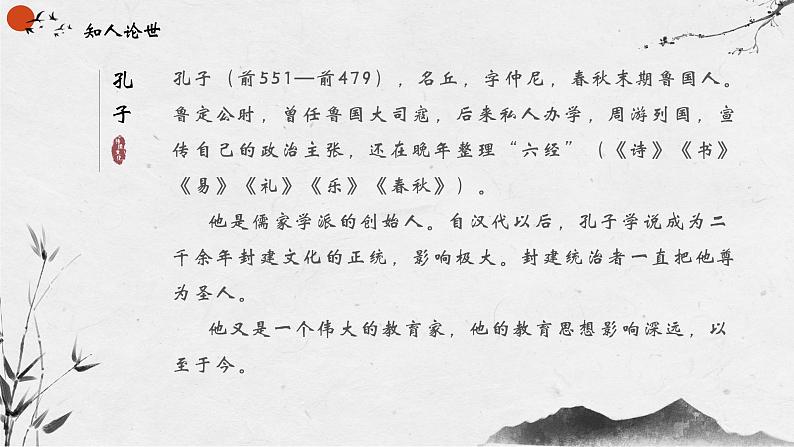 知人论世
孔子
孔子（前551—前479），名丘，字仲尼，春秋末期鲁国人。
鲁定公时，曾任鲁国大司寇，后来私人办学，周游列国，宣
传自己的政治主张，还在晚年整理“六经”（《诗》《书》
《易》《礼》《乐》《春秋》）。
他是儒家学派的创始人。自汉代以后，孔子学说成为二
千余年封建文化的正统，影响极大。封建统治者一直把他尊
为圣人。
他又是一个伟大的教育家，他的教育思想影响深远，以
至于今。